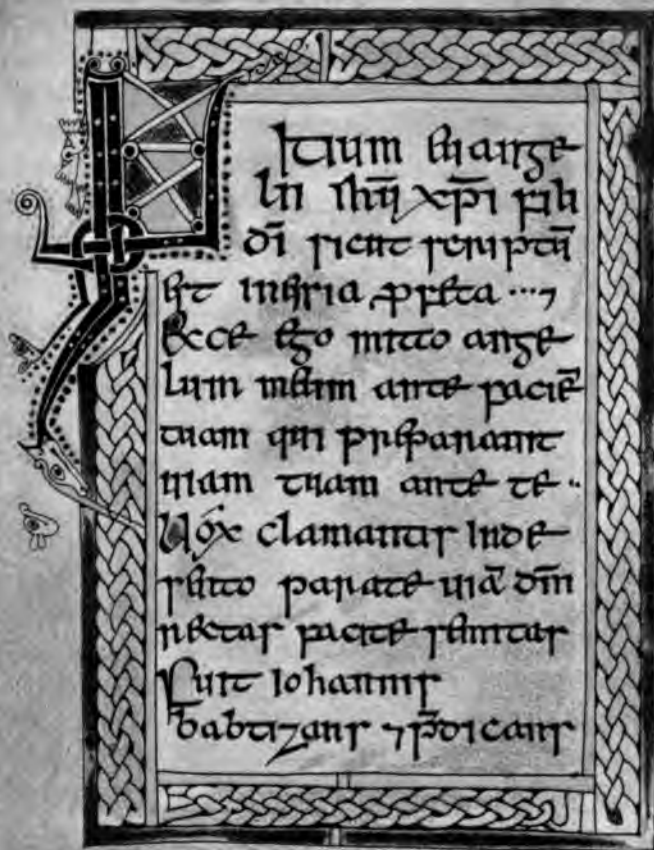 INitium euange
lii ihū xp̄i filii
dī sicut scriptū
est inesia ꝓfeta
Ecce ego mitto ange
lum meum ante faciē
tuam qui preparauit
uiam tuam ante te
Uox clamantis inde
serto parate uiā dn̄i
rectas facite semitas
Fuit iohannis
babtizans ⁊ p̄dicans